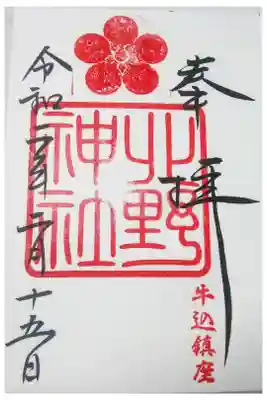 奉拝
牛込鎮座
北野神社
令和二年二月十五日